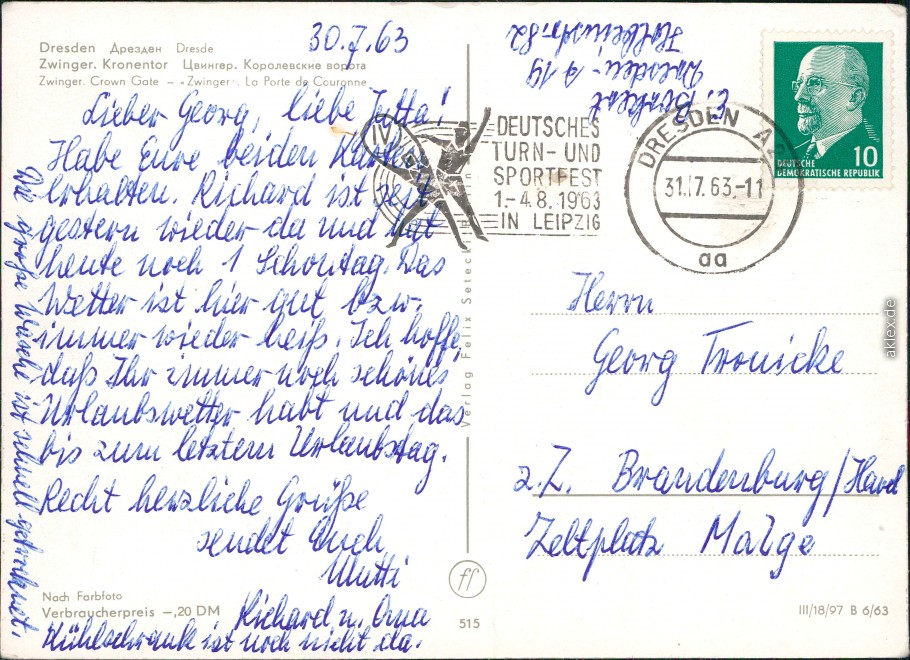 Dresden Дрезден Dresde
Zwinger. Kronentor Цвингер. Королевские ворота
Zwinger. Crown Gate — Zwinger. La Porte de Couronne
30.7.63
Lieber Georg, liebe Jutta!
Habe Eure beiden Karten
erhalten. Richard ist seit
gestern wieder da und hat
heute noch 1 Schontag. Das
Wetter ist hier gut bzw.
immer wieder heiß. Ich hoffe,
daß Ihr immer noch schönes
Urlaubswetter habt und das
bis zum letztem Urlaubstag.
Recht herzliche Grüße
sendet Euch
Mutti
Richard u. Oma
Kühlschrank ist noch nicht da.
Die große Wäsche ist schnell getrocknet.
Nach Farbfoto
Verbraucherpreis —,20 DM
Verlag Felix Setecki
ff
515
E.
Dresden - A 19
Holbeinstr. 82
IV
DEUTSCHES
TURN- UND
SPORTFEST
1.-4.8.1963
IN LEIPZIG
DRESDEN
31.7.63.-11
aa
DEUTSCHE
DEMOKRATISCHE REPUBLIK
10
Herrn
Georg Tronicke
z.Z. Brandenburg/Havel
Zeltplatz Malge
III/18/97 B 6/63
aklex.de